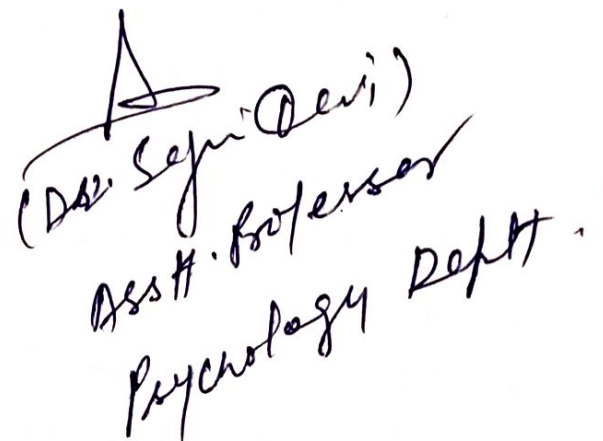 (Dr. Seju Devi)
Asstt. Professor
Psychology Deptt.